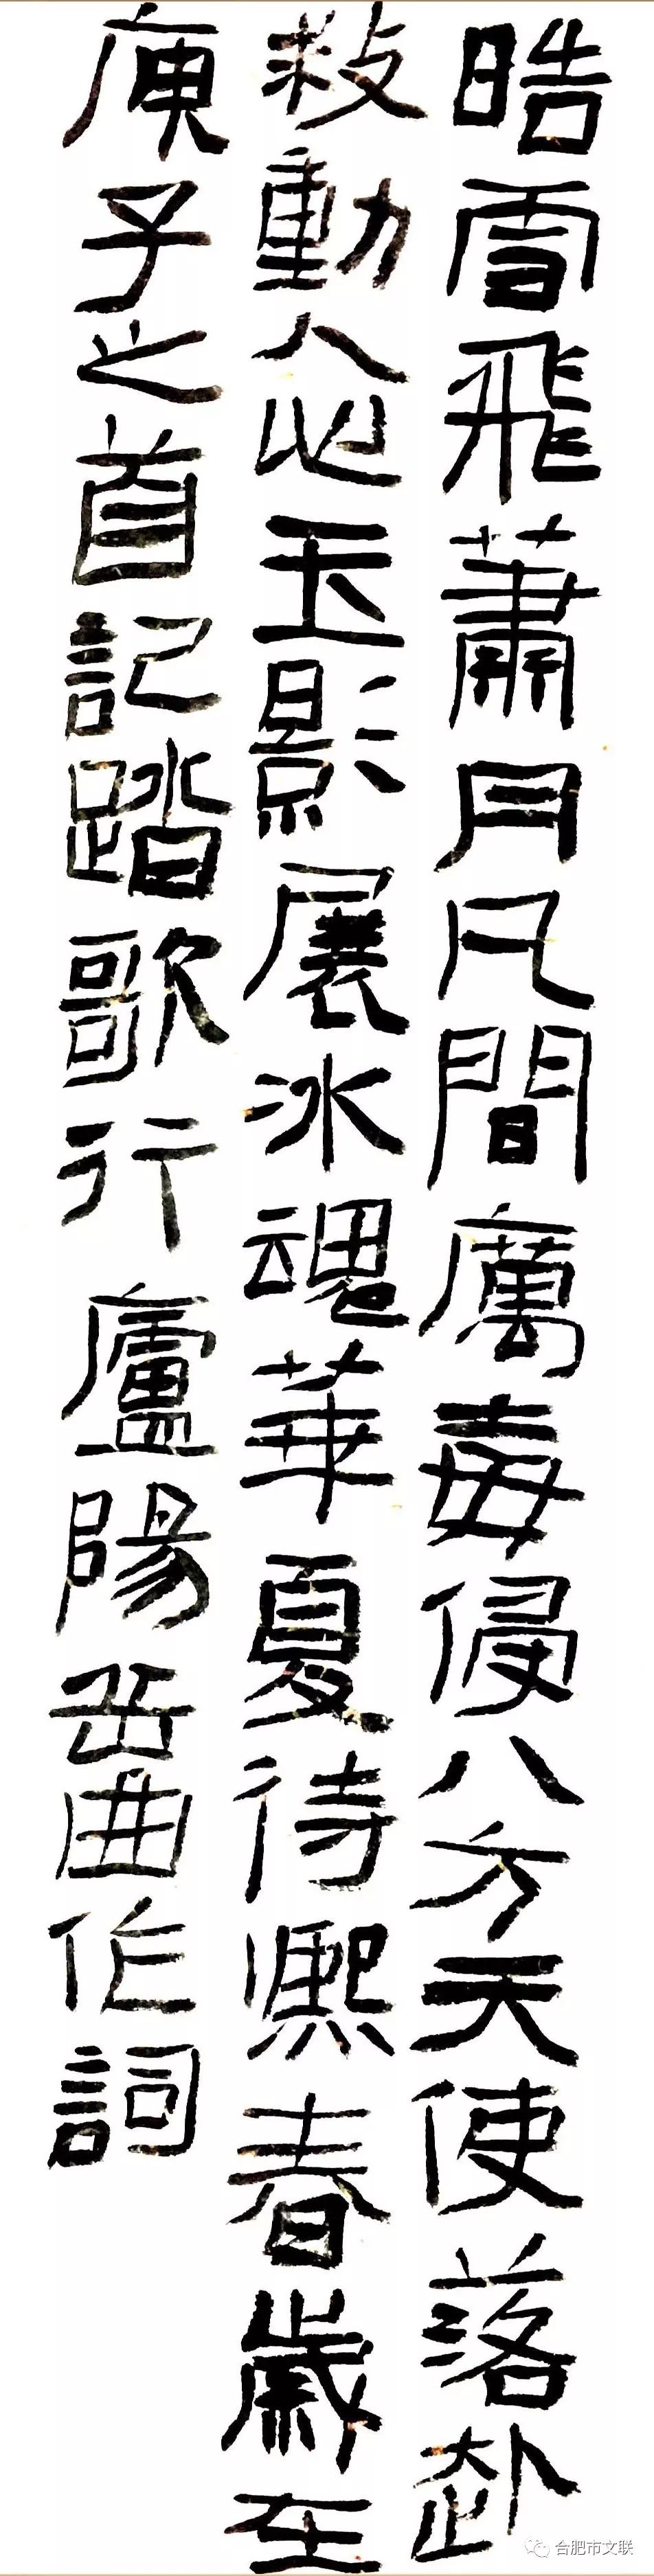 晧雪飛蕭月凡間厲毒侵八方天使落赴
救動人心玉影展冰魂華夏待熙春歲在
庚子之首記踏歌行廬陽岳曲作詞
合肥市文联